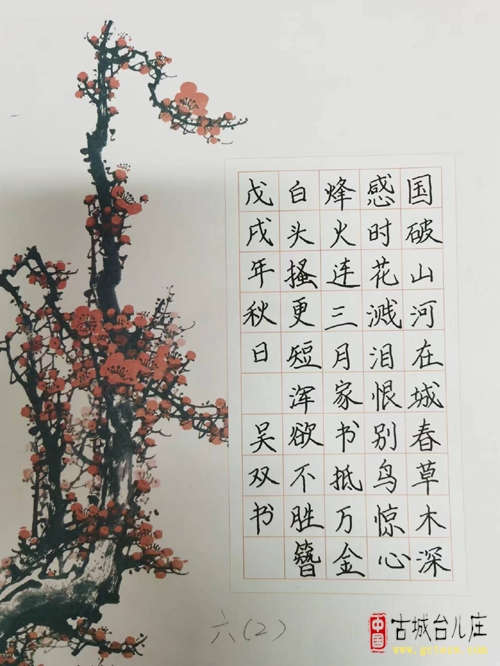 国破山河在城春草木深
感时花溅泪恨别鸟惊心
烽火连三月家书抵万金
白头搔更短浑欲不胜簪
戊戌年秋日 吴双书
六(2)
中国 古城台儿庄